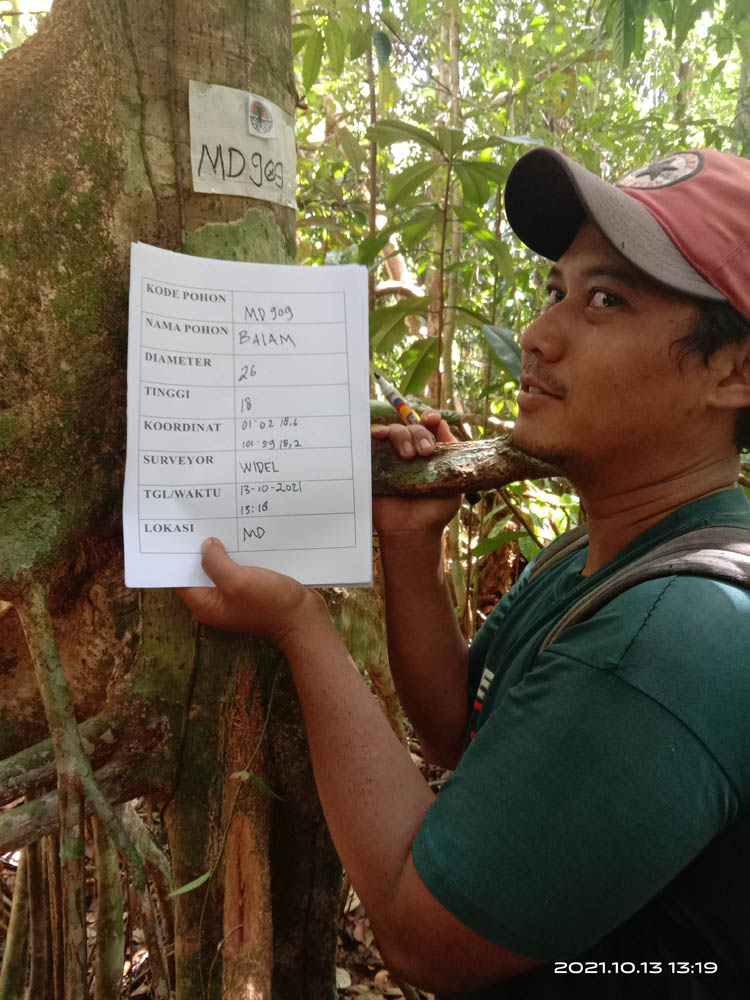 MD 909
KODE POHON MD 909
NAMA POHON BALAM
DIAMETER 26
TINGGI 18
KOORDINAT 01° 02 18,6
101° 59 18,2
SURVEYOR WIDEL
TGL/WAKTU 13-10-2021
15:18
LOKASI MD
2021.10.13 13:19